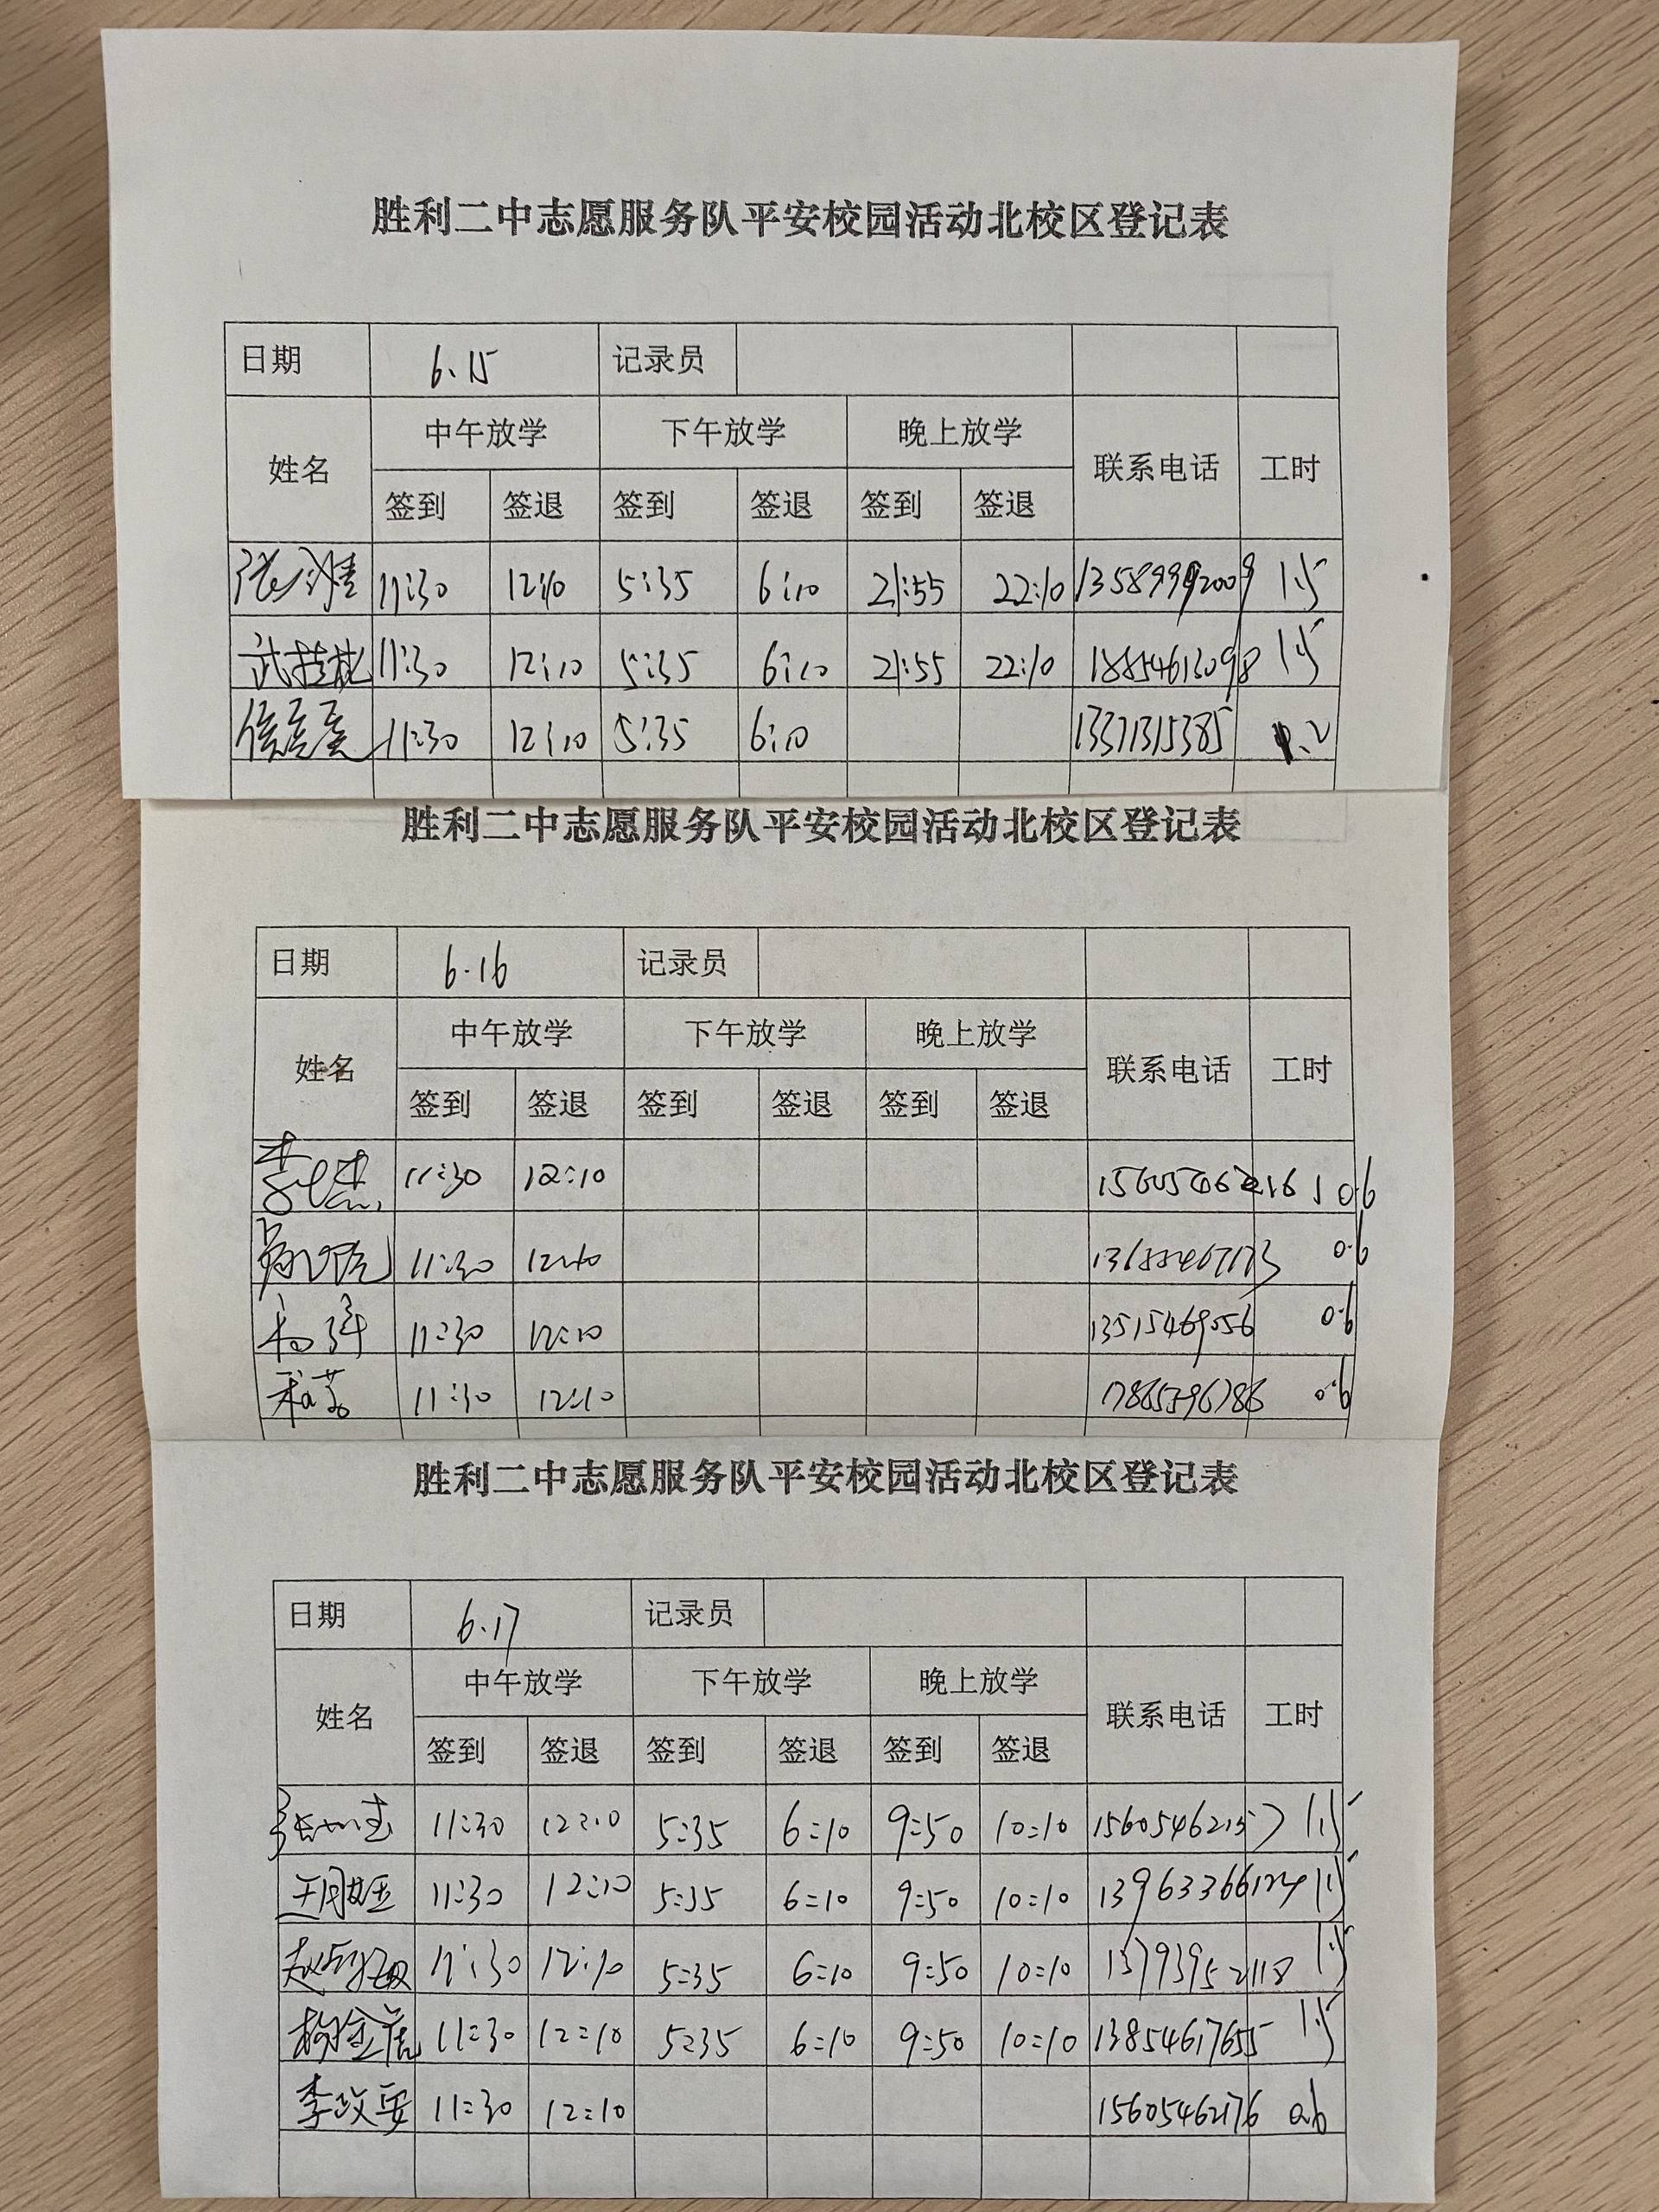 胜利二中志愿服务队平安校园活动北校区登记表
日期 6.15 记录员
中午放学 下午放学 晚上放学
姓名 联系电话 工时
签到 签退 签到 签退 签到 签退
11:30 12:10 5:35 6:10 21:55 22:10 13589992009 1.5
11:30 12:10 5:35 6:10 21:55 22:10 18854613098 1.5
11:30 12:10 5:35 6:10 13371315385
胜利二中志愿服务队平安校园活动北校区登记表
日期 6.16 记录员
中午放学 下午放学 晚上放学
姓名 联系电话 工时
签到 签退 签到 签退 签到 签退
11:30 12:10 0.6
11:30 12:10 0.6
11:30 12:10 13515469056 0.6
11:30 12:10 17865396786 0.6
胜利二中志愿服务队平安校园活动北校区登记表
日期 6.17 记录员
中午放学 下午放学 晚上放学
姓名 联系电话 工时
签到 签退 签到 签退 签到 签退
11:30 12:10 5:35 6:10 9:50 10:10 15605462157 1.5
11:30 12:10 5:35 6:10 9:50 10:10 1.5
11:30 12:10 5:35 6:10 9:50 10:10 13793952118 1.5
11:30 12:10 5:35 6:10 9:50 10:10 13854617655 1.5
李政安 11:30 12:10 15605462176 0.6